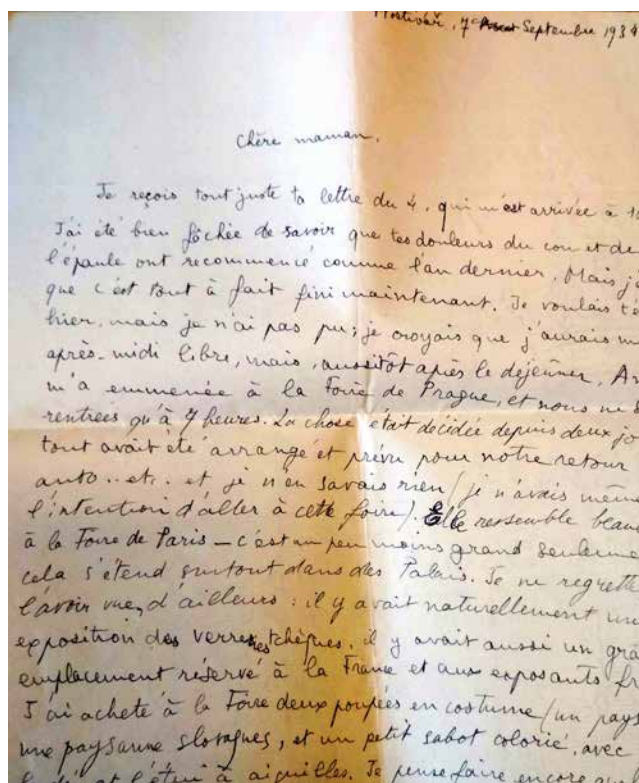 Hostivař, 7 Septembre 1934
Chère maman,
Je reçois tout juste ta lettre du 4, qui m'est arrivée à
J'ai été bien fâchée de savoir que tes douleurs du cou et de
l'épaule ont recommencé comme l'an dernier. Mais
que c'est tout à fait fini maintenant. Je voulais
hier, mais je n'ai pas pu; je croyais que j'aurais
après-midi libre, mais, aussitôt après le déjeuner,
m'a emmenée à la Foire de Prague, et nous ne
rentrées qu'à 7 heures. La chose était décidée depuis deux
tout avait été arrangé et prévu pour notre retour
auto..etc. et je n'en savais rien (je n'avais
l'intention d'aller à cette foire). Elle ressemble
à la Foire de Paris - c'est un peu moins grand
cela s'étend surtout dans des Palais. Je ne regrette
l'avoir vue, d'ailleurs : il y avait naturellement
exposition des verreries tchèques, il y avait aussi un
emplacement réservé à la France et aux exposants
J'ai acheté à la Foire deux poupées en costume (un
une paysanne slovaques, et un petit sabot colorié, avec
et l'étui à aiguilles. Je pense faire encore